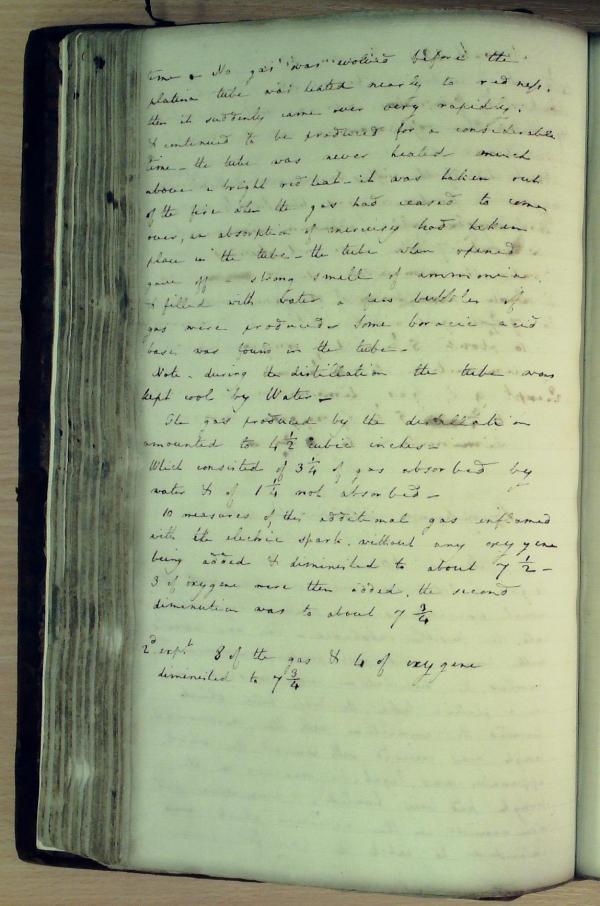 time. No gas was evolved before the
platina tube was heated nearly to redness.
then it suddenly came over very rapidly.
& continued to be produced for a considerable
time - the tube was never heated much
above a bright red heat - it was taken out
of the fire when the gas had ceased to come
over, an absorption of mercury had taken
place in the tube - the tube when opened
gave off a strong smell of ammonia.
& filled with water a few bubbles of
gas were produced Some boracic acid
basis was found in the tube -
Note. during the distillation the tube was
kept cool by Water -
The gas produced by the distillation
amounted to 4 1/2 cubic inches -
Which consisted of 3 1/4 of gas absorbed by
water & of 1 1/4 not absorbed -
10 measures of this additional gas inflamed
with the electric spark. without any oxygene
being added & diminished to about 7 1/2 -
3 of oxygene were then added, the second
diminution was to about 7 3/4
2d expt 8 of the gas & 4 of oxygene
diminished to 7 3/4